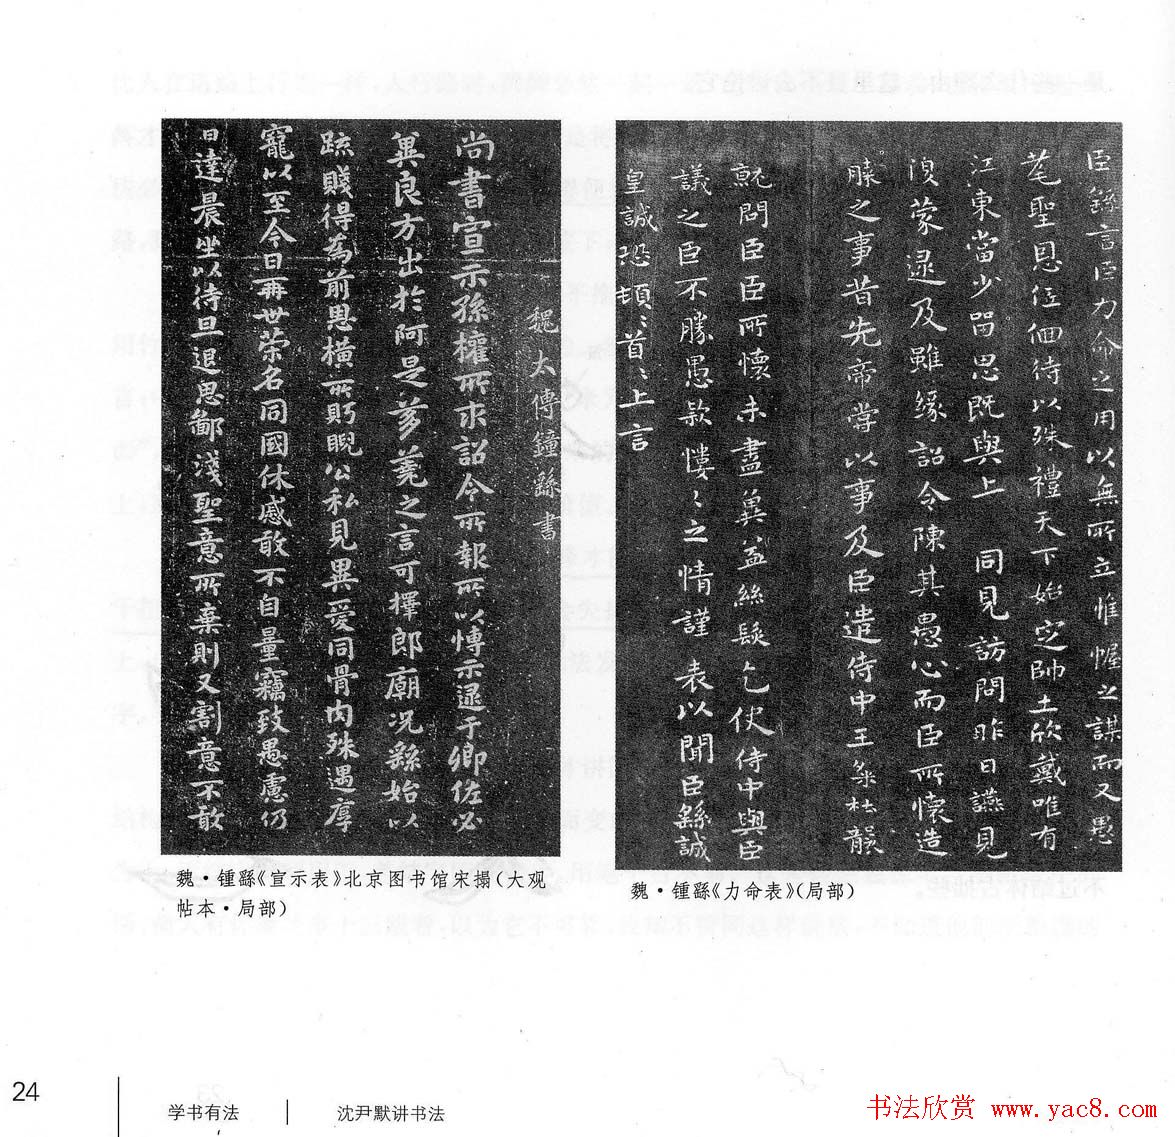 魏太傅鍾繇書
尚書宣示孫權所求詔令所報所以博示逮于卿佐必
冀良方出於阿是芻蕘之言可擇郎廟況繇始以
疏賤得為前恩橫所眄睨公私見異愛同骨肉殊遇厚
寵以至今日再世榮名同國休慼敢不自量竊致愚慮仍
日達晨坐以待旦退思鄙淺聖意所棄則又割意不敢
魏·锺繇《宣示表》北京图书馆宋搨(大观
帖本·局部)
臣繇言臣力命之用以無所立惟幄之謀而又愚
耄聖恩低佪待以殊禮天下始定帥土欣戴唯有
江東當少留思既與上 同見訪問昨日讌見
復蒙逮及雖緣詔令陳其愚心而臣所懷造
膝之事昔先帝嘗以事及臣遣侍中王粲杜襲
就問臣臣所懷未盡冀益絲髮乞使侍中與臣
議之臣不勝愚款慺〻之情謹表以聞臣繇誠
皇誠恐頓〻首〻上言
魏·锺繇《力命表》(局部)
24
学书有法 | 沈尹默讲书法
书法欣赏 www.yac8.com